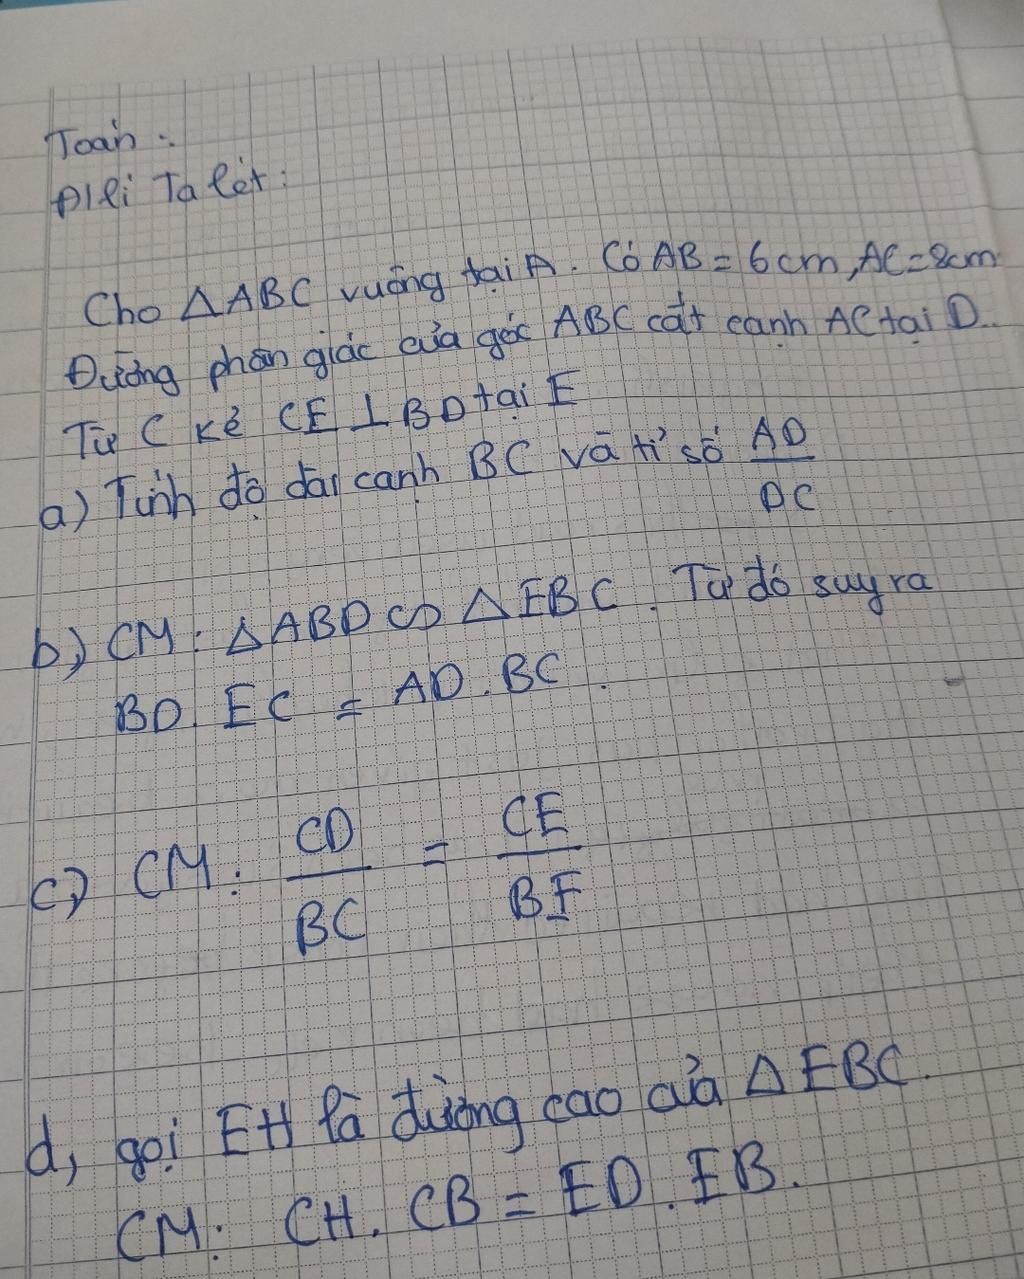 Toán :
Đ/lí Ta lét :
Cho △ABC vuông tại A. Có AB = 6cm, AC = 8cm
Đường phân giác của góc ABC cắt cạnh AC tại D.
Từ C kẻ CE ⊥ BD tại E
a) Tính độ dài cạnh BC và tỉ số AD/DC
b) CM : △ABD ∽ △EBC. Từ đó suy ra
BD. EC = AD. BC.
c) CM : CD/BC = CE/BE
d, gọi EH là đường cao của △EBC.
CM : CH. CB = ED. EB.